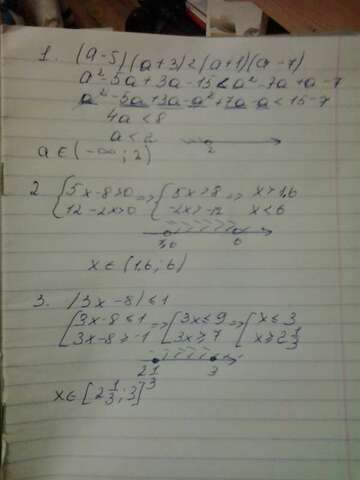 1. (a-5)(a+3)<(a+1)(a-7)
a²-5a+3a-15<a²-7a+a-7
a²-5a+3a-a²+7a-a<15-7
4a<8
a<2
2
a∈(-∞;2)
2 {5x-8>0 => {5x>8 => x>1,6
12-2x>0 {-2x>-12 x<6
6
x∈(1,6;6)
3. |3x-8|≤1
{3x-8≤1 => {3x≤9 => {x≤3
3x-8≥-1 {3x≥7 {x≥2 1/3
2 1/3 3
x∈[2 1/3;3]